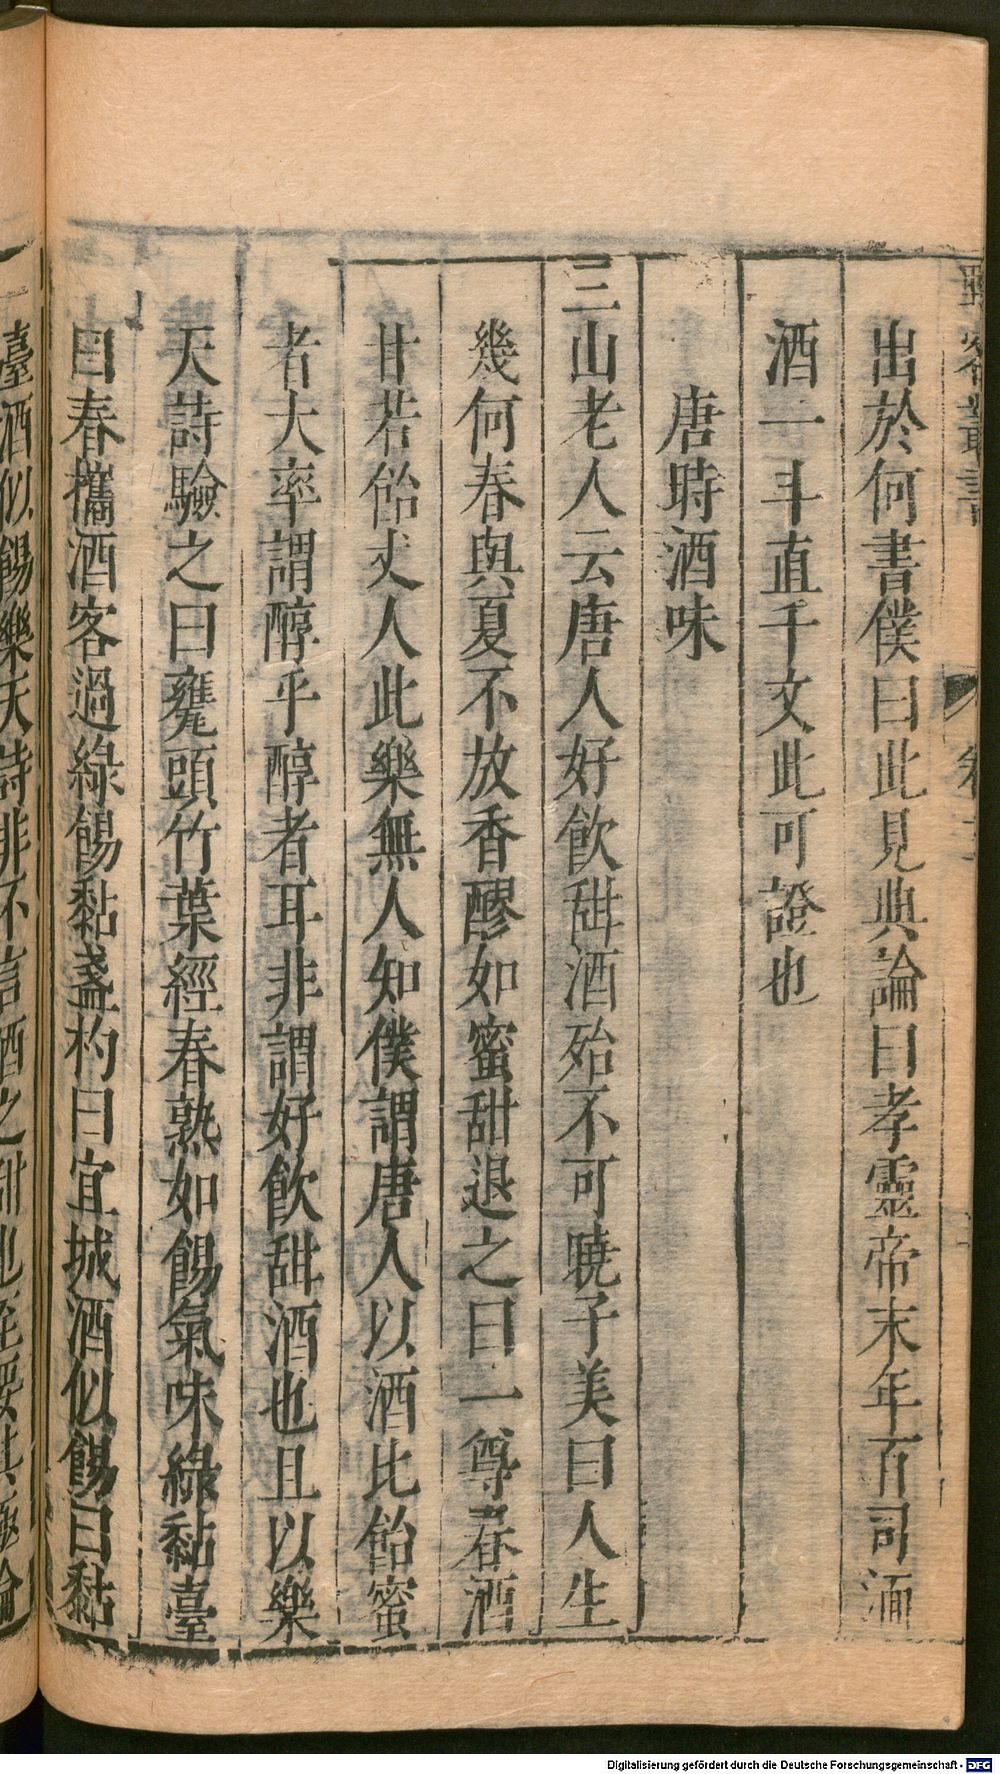 野客叢書
出於何書僕曰此見典論曰孝靈帝末年百司湎
酒一斗直千文此可證也
唐時酒味
三山老人云唐人好飲甜酒殆不可曉子美曰人生
幾何春與夏不放香醪如蜜甜退之曰一尊春酒
甘若飴丈人此樂無人知僕謂唐人以酒比飴蜜
者大率謂醇乎醇者耳非謂好飲甜酒也且以樂
天詩驗之曰甕頭竹葉經春熟如餳氣味綠黏臺
曰春攜酒客過綠餳黏盞杓曰宜城酒似餳曰黏
臺酒似餳樂天詩非不言酒之甜也至要其極論
Digitalisierung gefördert durch die Deutsche Forschungsgemeinschaft - DFG